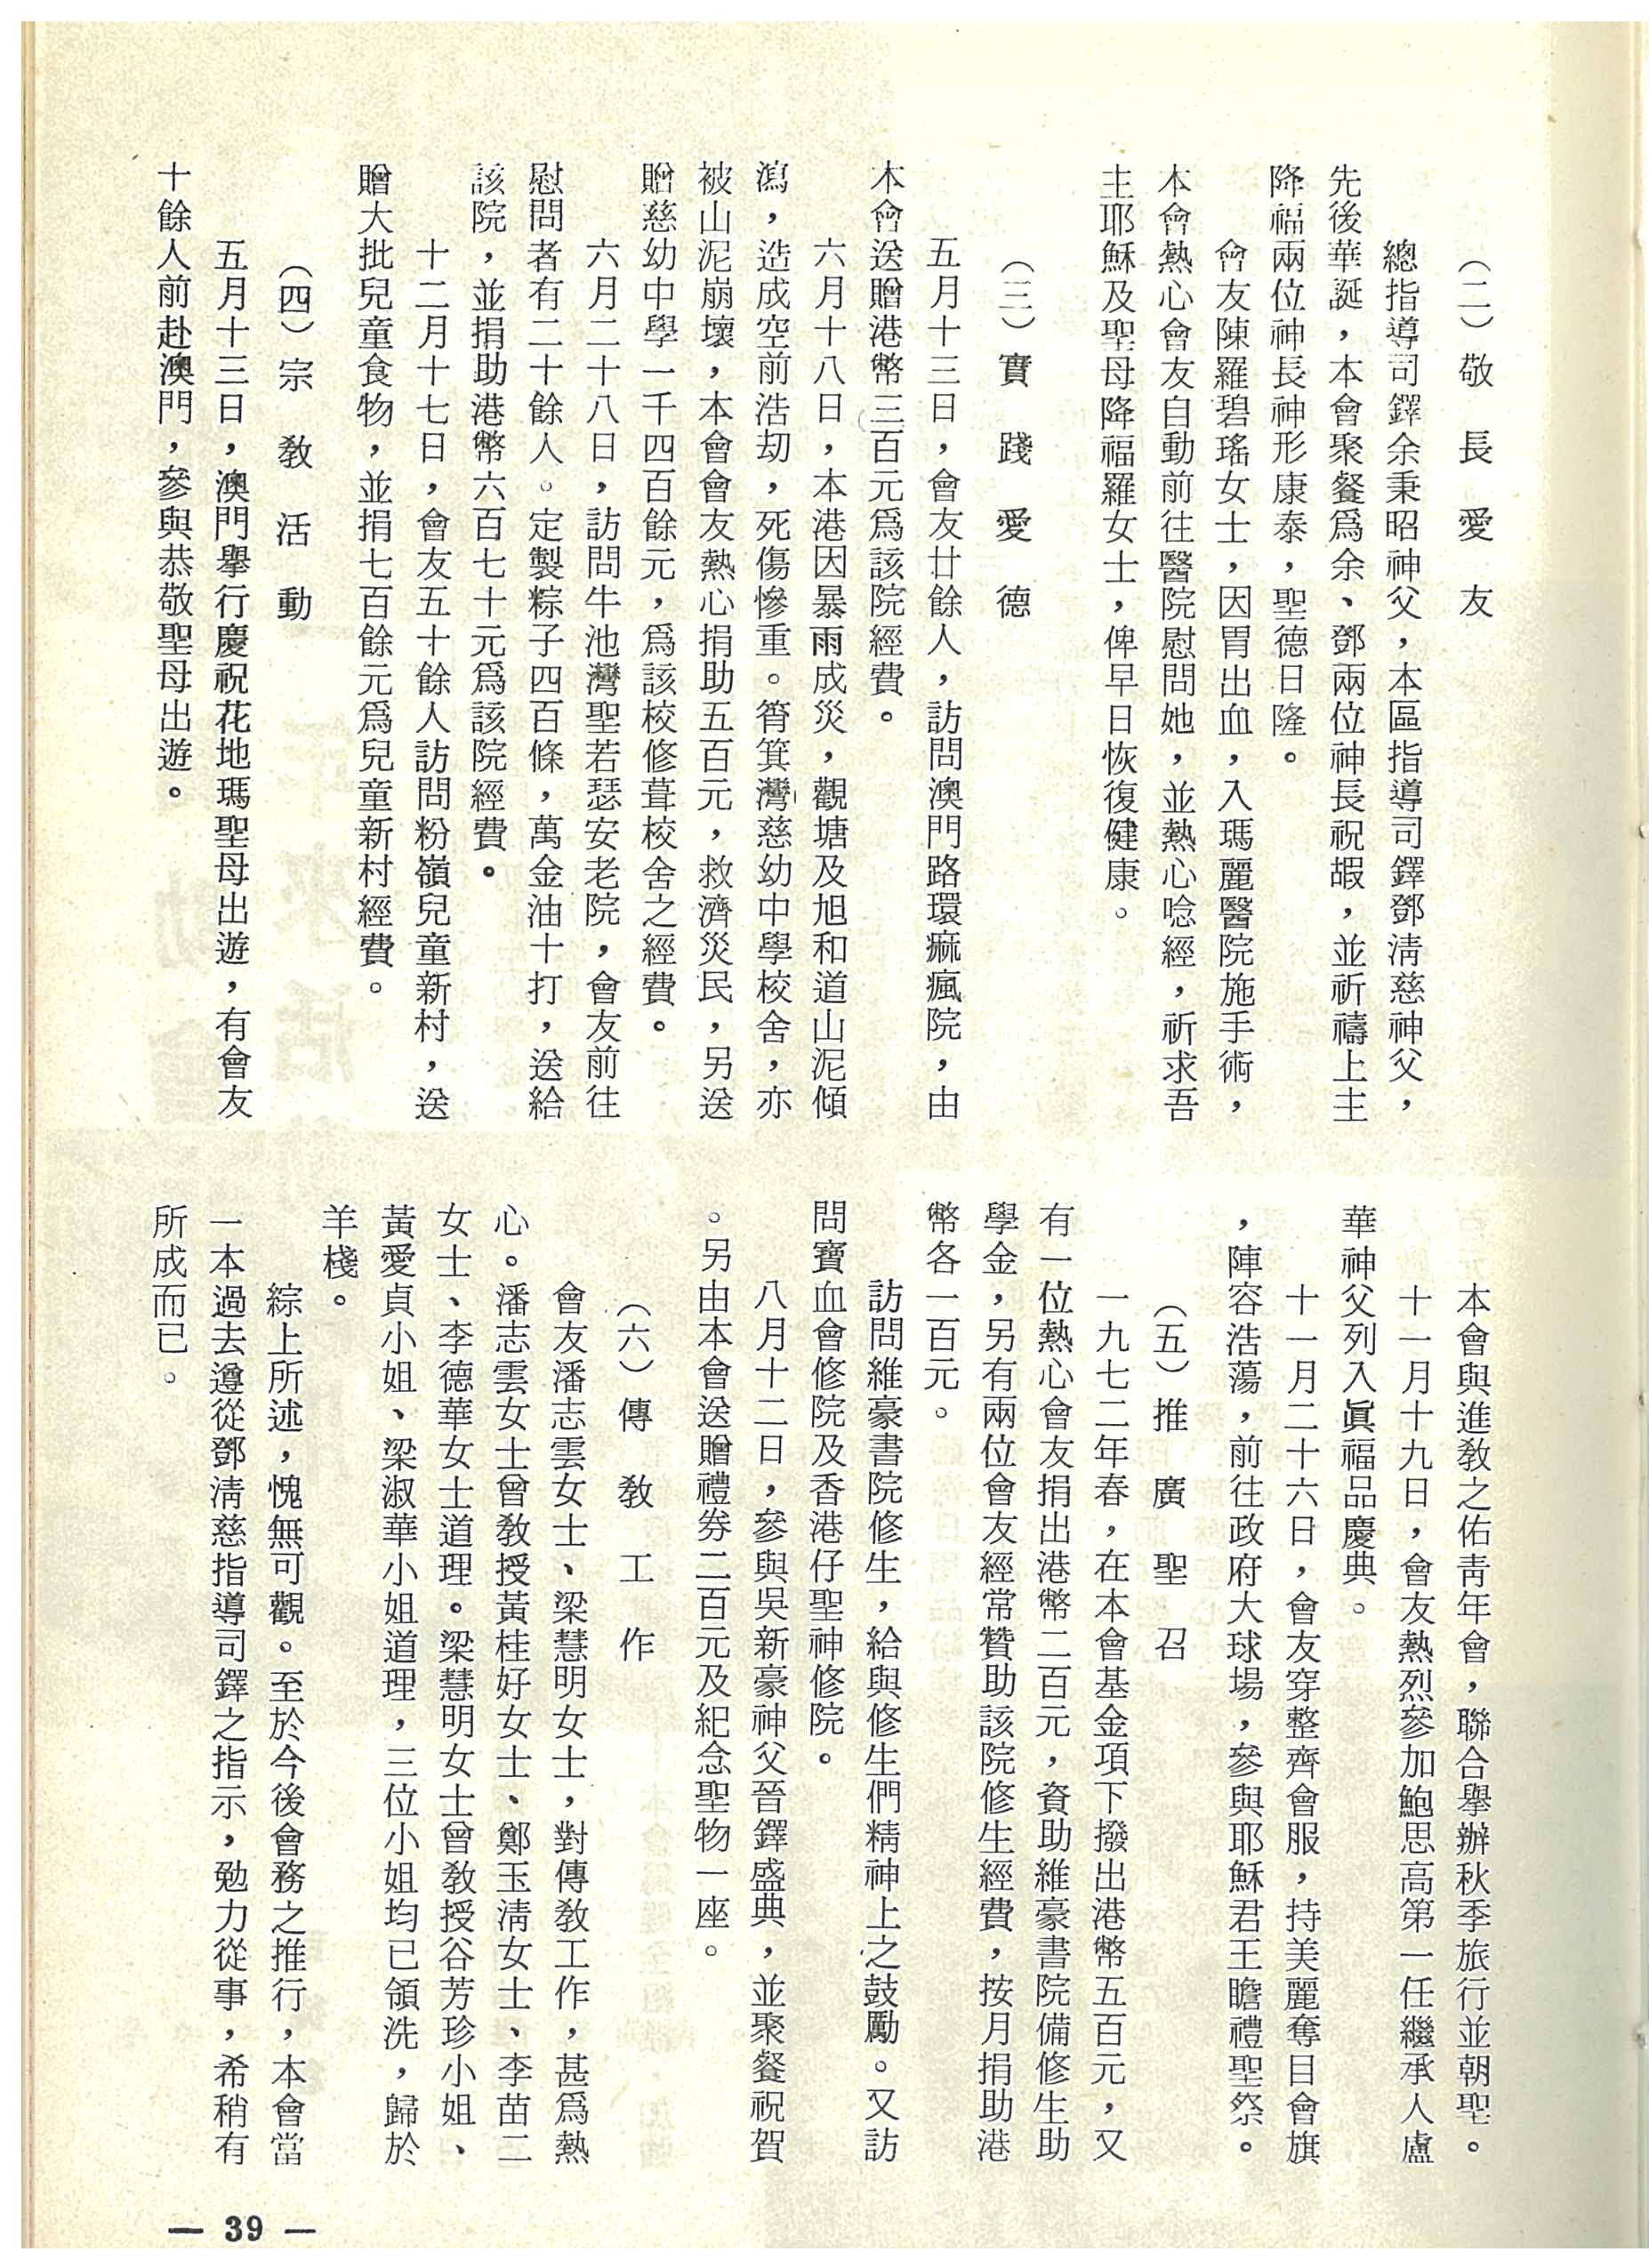 （二）敬長愛友
總指導司鐸余秉昭神父，本區指導司鐸鄧淸慈神父，
先後華誕，本會聚餐爲余、鄧兩位神長祝嘏，並祈禱上主
降福兩位神長神形康泰，聖德日隆。
會友陳羅碧瑤女士，因胃出血，入瑪麗醫院施手術，
本會熱心會友自動前往醫院慰問她，並熱心唸經，祈求吾
主耶穌及聖母降福羅女士，俾早日恢復健康。
（三）實踐愛德
五月十三日，會友廿餘人，訪問澳門路環痲瘋院，由
本會送贈港幣三百元爲該院經費。
六月十八日，本港因暴雨成災，觀塘及旭和道山泥傾
瀉，造成空前浩刧，死傷慘重。筲箕灣慈幼中學校舍，亦
被山泥崩壞，本會會友熱心捐助五百元，救濟災民，另送
贈慈幼中學一千四百餘元，爲該校修葺校舍之經費。
六月二十八日，訪問牛池灣聖若瑟安老院，會友前往
慰問者有二十餘人。定製粽子四百條，萬金油十打，送給
該院，並捐助港幣六百七十元爲該院經費。
十二月十七日，會友五十餘人訪問粉嶺兒童新村，送
贈大批兒童食物，並捐七百餘元爲兒童新村經費。
（四）宗敎活動
五月十三日，澳門擧行慶祝花地瑪聖母出遊，有會友
十餘人前赴澳門，參與恭敬聖母出遊。
本會與進敎之佑靑年會，聯合擧辦秋季旅行並朝聖。
十一月十九日，會友熱烈參加鮑思高第一任繼承人盧
華神父列入眞福品慶典。
十一月二十六日，會友穿整齊會服，持美麗奪目會旗
，陣容浩蕩，前往政府大球場，參與耶穌君王瞻禮聖祭。
（五）推廣聖召
一九七二年春，在本會基金項下撥出港幣五百元，又
有一位熱心會友捐出港幣二百元，資助維豪書院備修生助
學金，另有兩位會友經常贊助該院修生經費，按月捐助港
幣各一百元。
訪問維豪書院修生，給與修生們精神上之鼓勵。又訪
問寶血會修院及香港仔聖神修院。
八月十二日，參與吳新豪神父晉鐸盛典，並聚餐祝賀
。另由本會送贈禮券二百元及紀念聖物一座。
（六）傳敎工作
會友潘志雲女士、梁慧明女士，對傳敎工作，甚爲熱
心。潘志雲女士曾敎授黃桂好女士、鄭玉淸女士、李苗二
女士、李德華女士道理。梁慧明女士曾敎授谷芳珍小姐、
黃愛貞小姐、梁淑華小姐道理，三位小姐均已領洗，歸於
羊棧。
綜上所述，愧無可觀。至於今後會務之推行，本會當
一本過去遵從鄧淸慈指導司鐸之指示，勉力從事，希稍有
所成而已。
— 39 —